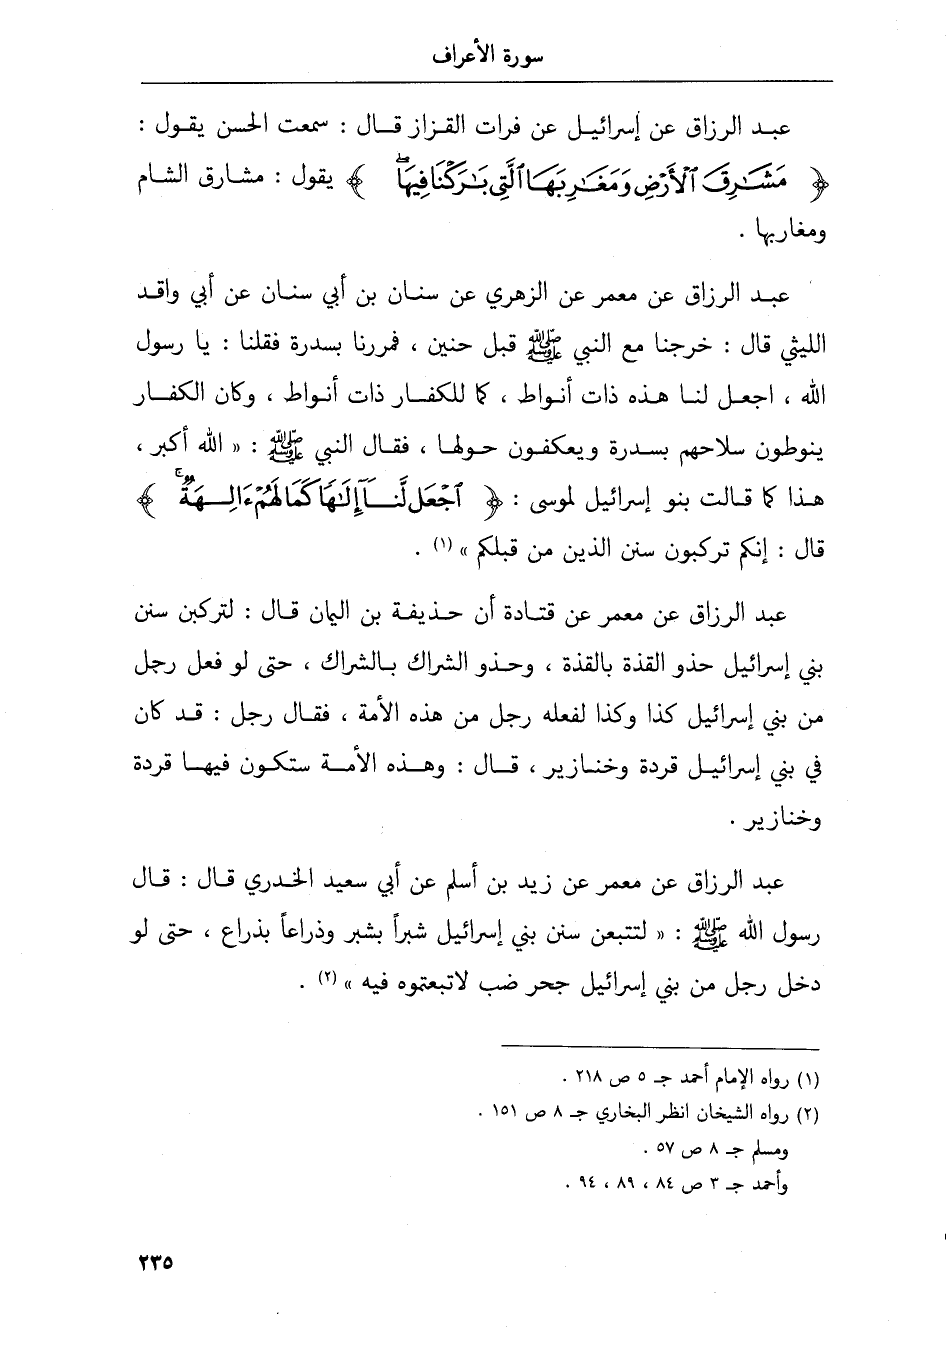 سورة الأعراف
عبد الرزاق عن إسرائيل عن فرات القزاز قال : سمعت الحسن يقول :
﴿ مَشَٰرِقَ ٱلْأَرْضِ وَمَغَٰرِبَهَا ٱلَّتِى بَٰرَكْنَا فِيهَا ۖ ﴾ يقول : مشارق الشام
ومغاربها .
عبد الرزاق عن معمر عن الزهري عن سنان بن أبي سنان عن أبي واقد
الليثي قال : خرجنا مع النبي ﷺ قبل حنين ، فمررنا بسدرة فقلنا : يا رسول
الله ، اجعل لنا هذه ذات أنواط ، كما للكفار ذات أنواط ، وكان الكفار
ينوطون سلاحهم بسدرة ويعكفون حولها ، فقال النبي ﷺ : « الله أكبر ،
هذا كما قالت بنو إسرائيل لموسى : ﴿ ٱجْعَل لَّنَآ إِلَٰهًا كَمَا لَهُمْ ءَالِهَةٌ ۚ ﴾
قال : إنكم تركبون سنن الذين من قبلكم » (١) .
عبد الرزاق عن معمر عن قتادة أن حذيفة بن اليمان قال : لتركبن سنن
بني إسرائيل حذو القذة بالقذة ، وحذو الشراك بالشراك ، حتى لو فعل رجل
من بني إسرائيل كذا وكذا لفعله رجل من هذه الأمة ، فقال رجل : قد كان
في بني إسرائيل قردة وخنازير ، قال : وهذه الأمة ستكون فيها قردة
وخنازير .
عبد الرزاق عن معمر عن زيد بن أسلم عن أبي سعيد الخدري قال : قال
رسول الله ﷺ : « لتتبعن سنن بني إسرائيل شبراً بشبر وذراعاً بذراع ، حتى لو
دخل رجل من بني إسرائيل جحر ضب لاتبعتموه فيه » (٢) .
(١) رواه الإمام أحمد جـ ٥ ص ٢١٨ .
(٢) رواه الشيخان انظر البخاري جـ ٨ ص ١٥١ .
ومسلم جـ ٨ ص ٥٧ .
وأحمد جـ ٣ ص ٨٤ ، ٨٩ ، ٩٤ .
٢٣٥